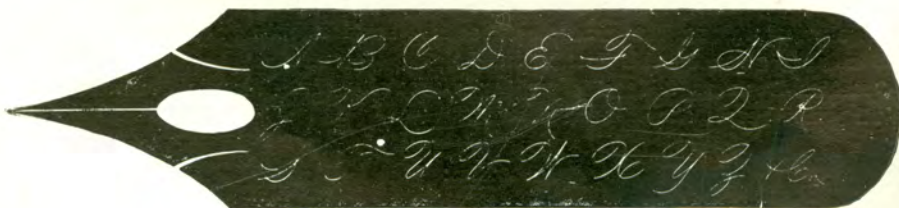 A B C D E F G H I
J K L M N O P Q R
S T U V W X Y Z &c.